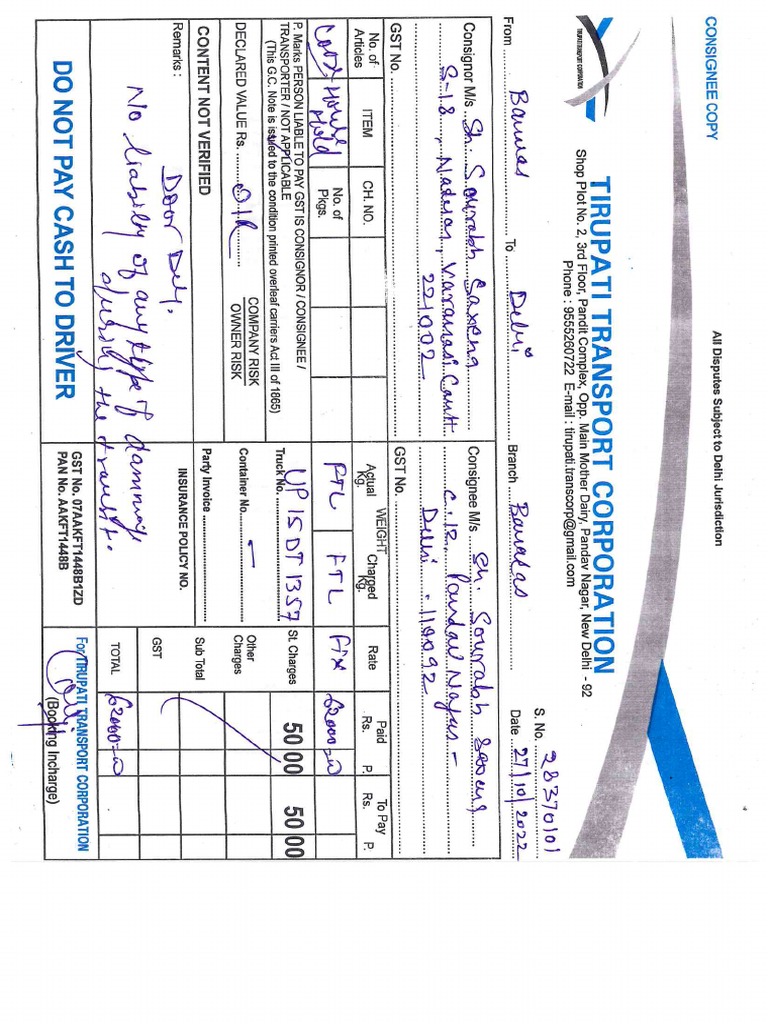 CONSIGNEE COPY
All Disputes Subject to Delhi Jurisdiction
TIRUPATI TRANSPORT CORPORATION
TIRUPATI TRANSPORT CORPORATION
Shop Plot No. 2, 3rd Floor, Pandit Complex, Opp. Main Mother Dairy, Pandav Nagar, New Delhi - 92
Phone : 9555260722 E-mail : tirupati.transcorp@gmail.com
S. No. 28370101
From Banaras To Delhi Branch Banaras Date 27/10/2022
Consignor M/s Sh Sourabh Saxena
S-18, Nadesar, Varanasi Cantt
221002
GST No.
Consignee M/s Sh. Sourabh Saxena
C-12, Pandav Nagar -
Delhi - 110092
GST No.
No. of Articles ITEM CH. NO. WEIGHT Actual Kg. Charged Kg. Rate Paid Rs. P. To Pay Rs. P.
House Hold No. of Pkgs. FTL FTL Fix 62000-00
P. Marks PERSON LIABLE TO PAY GST IS CONSIGNOR / CONSIGNEE /
TRANSPORTER / NOT APPLICABLE
(This G.C. Note is issued to the condition printed overleaf carriers Act III of 1865)
Truck No. UP 15 DT 1357
St. Charges 50 00 50 00
DECLARED VALUE Rs. O/R
COMPANY RISK
OWNER RISK
Container No. -
Other Charges
CONTENT NOT VERIFIED
Party Invoice
Sub Total
Remarks :
Door Dely.
No liability of any type of dammage
during the transit.
INSURANCE POLICY NO.
GST
TOTAL 62000-00
DO NOT PAY CASH TO DRIVER
GST No. 07AAKFT1448B1ZD
PAN No. AAKFT1448B
For TIRUPATI TRANSPORT CORPORATION
(Booking Incharge)